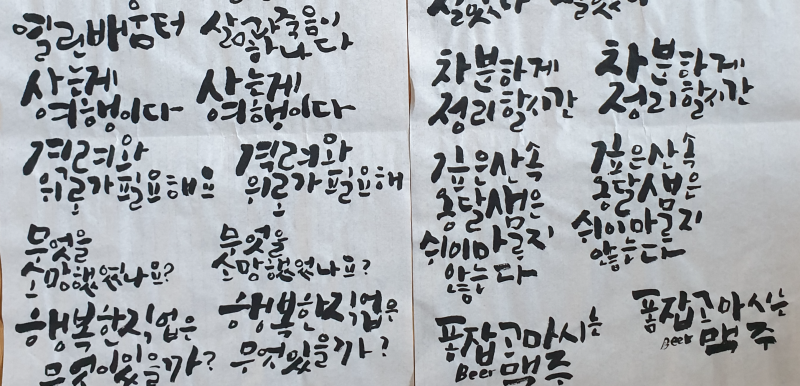 열린배움터
삶과죽음이
하나다
사는게
여행이다
사는게
여행이다
격려와
위로가필요해요
격려와
위로가필요해
무엇을
소망했었나요?
무엇을
소망했었나요?
행복한직업은
무엇이있을까?
행복한직업은
무엇있을까?
차분하게
정리할시간
차분하게
정리할시간
깊은산속
옹달샘은
쉬이마르지
않는다
깊은산속
옹달샘은
쉬이마르지
않는다
폼잡고마시는
Beer 맥주
폼잡고마시는
Beer 맥주